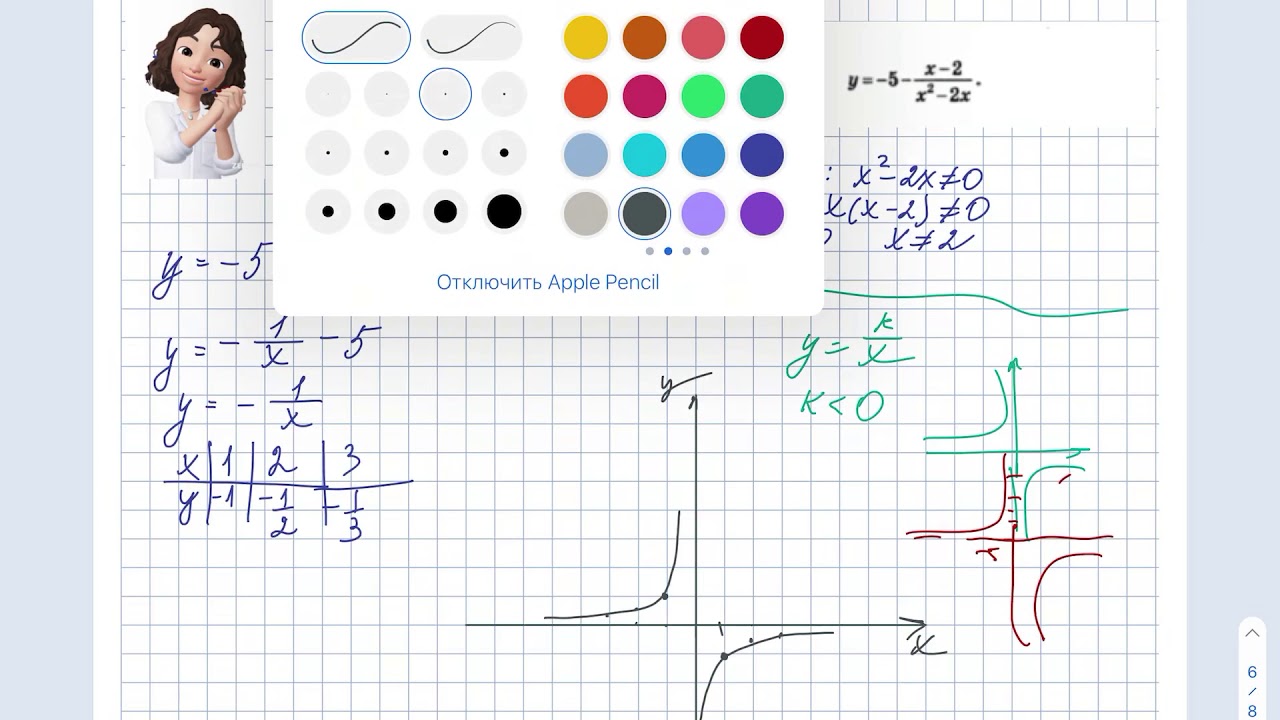 y = -5 - \frac{x-2}{x^2-2x}.
: x² - 2x ≠ 0
x(x-2) ≠ 0
x ≠ 2
y = -5
Отключить Apple Pencil
y = -\frac{1}{x} - 5
y = -\frac{1}{x}
x | 1 | 2 | 3
y | -1 | -\frac{1}{2} | -\frac{1}{3}
y = \frac{k}{x}
k < 0
y
1
x
-5
6
/
8